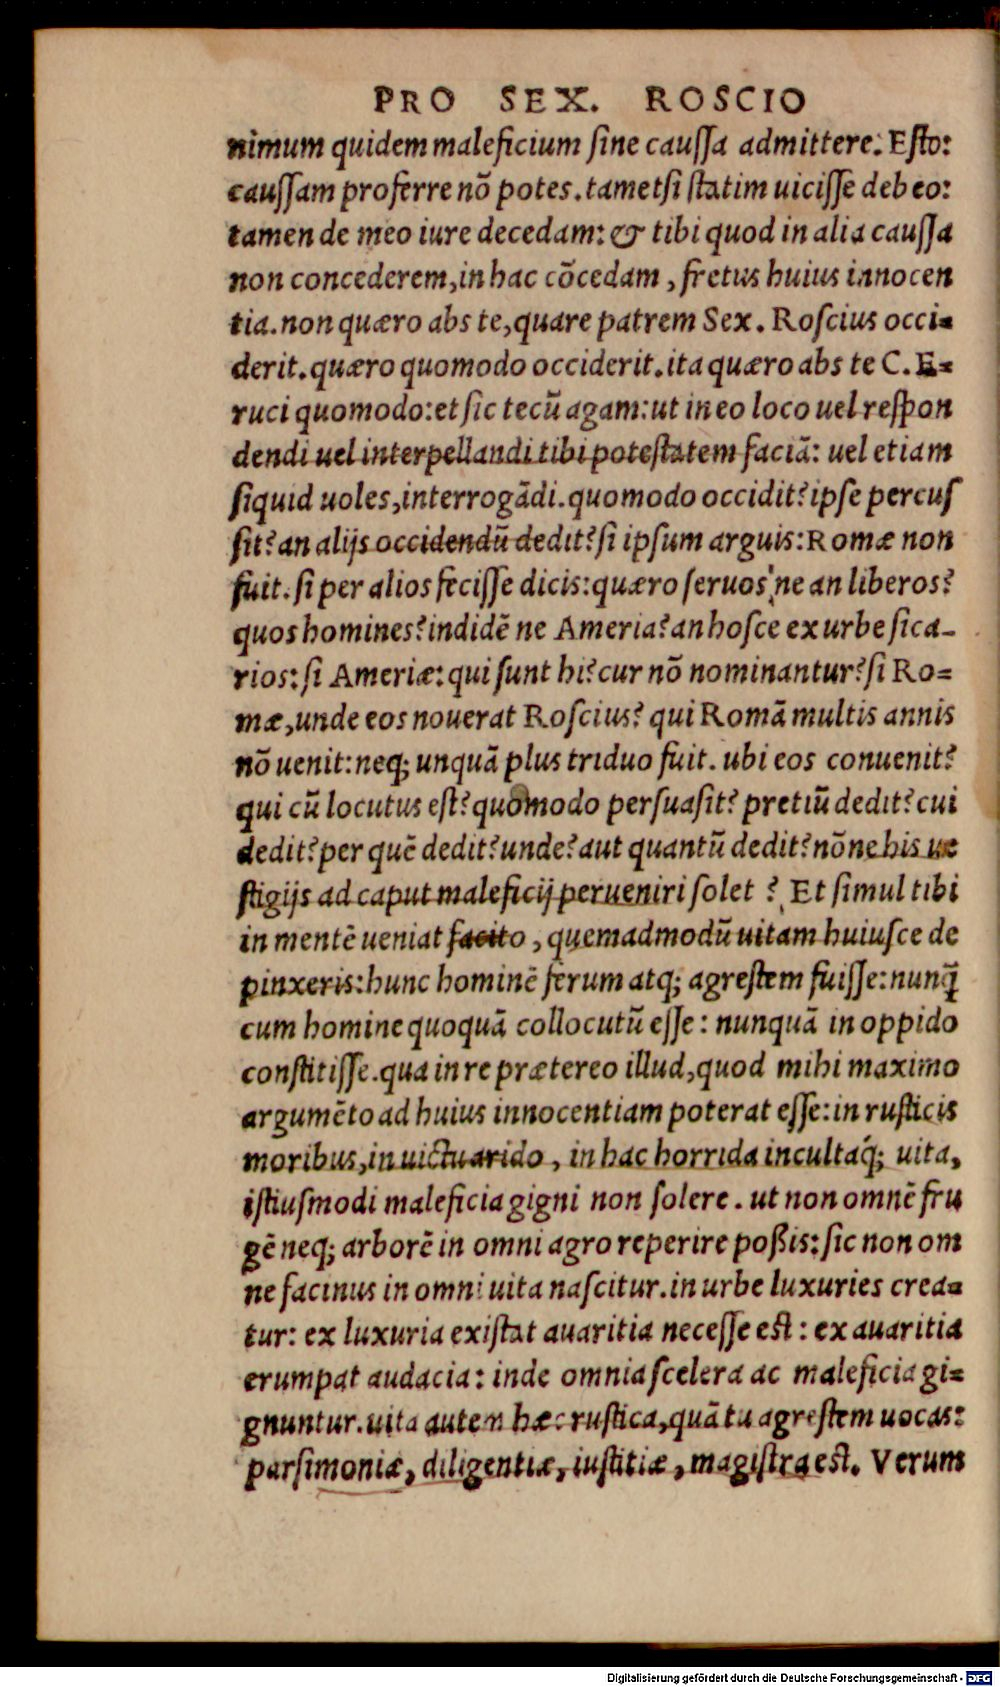 PRO SEX. ROSCIO
nimum quidem maleficium sine caussa admittere. Esto:
caussam proferre nõ potes. tametsi statim uicisse debeo:
tamen de meo iure decedam: & tibi quod in alia caussa
non concederem, in hac cõcedam, fretus huius innocen
tia. non quæro abs te, quare patrem Sex. Roscius occi=
derit. quæro quomodo occiderit. ita quæro abs te C. E=
ruci quomodo: et sic tecũ agam: ut in eo loco uel respon
dendi uel interpellandi tibi potestatem faciã: uel etiam
siquid uoles, interrogãdi. quomodo occidit? ipse percus
sit? an alijs occidendũ dedit? si ipsum arguis: Romæ non
fuit. si per alios fecisse dicis: quæro seruos'ne an liberos?
quos homines? indidẽ ne Ameria? an hosce ex urbe sica-
rios: si Ameriæ: qui sunt hi? cur nõ nominantur? si Ro=
mæ, unde eos nouerat Roscius? qui Romã multis annis
nõ uenit: neq; unquã plus triduo fuit. ubi eos conuenit?
qui cũ locutus est? quomodo persuasit? pretiũ dedit? cui
dedit? per quẽ dedit? unde? aut quantũ dedit? nõne his ue
stigijs ad caput maleficij perueniri solet? Et simul tibi
in mentẽ ueniat facito, quemadmodũ uitam huiusce de
pinxeris: hunc hominẽ ferum atq; agrestem fuisse: nunq̃
cum homine quoquã collocutũ esse: nunquã in oppido
constitisse. qua in re prætereo illud, quod mihi maximo
argumẽto ad huius innocentiam poterat esse: in rusticis
moribus, in uictu arido, in hac horrida incultaq́; uita,
istiusmodi maleficia gigni non solere. ut non omnẽ fru
gẽ neq; arborẽ in omni agro reperire poßis: sic non om
ne facinus in omni uita nascitur. in urbe luxuries crea=
tur: ex luxuria existat auaritia necesse est: ex auaritia
erumpat audacia: inde omnia scelera ac maleficia gi=
gnuntur. uita autem hæc rustica, quã tu agrestem uocas:
parsimoniæ, diligentiæ, iustitiæ, magistra est. Verum
Digitalisierung gefördert durch die Deutsche Forschungsgemeinschaft - DFG